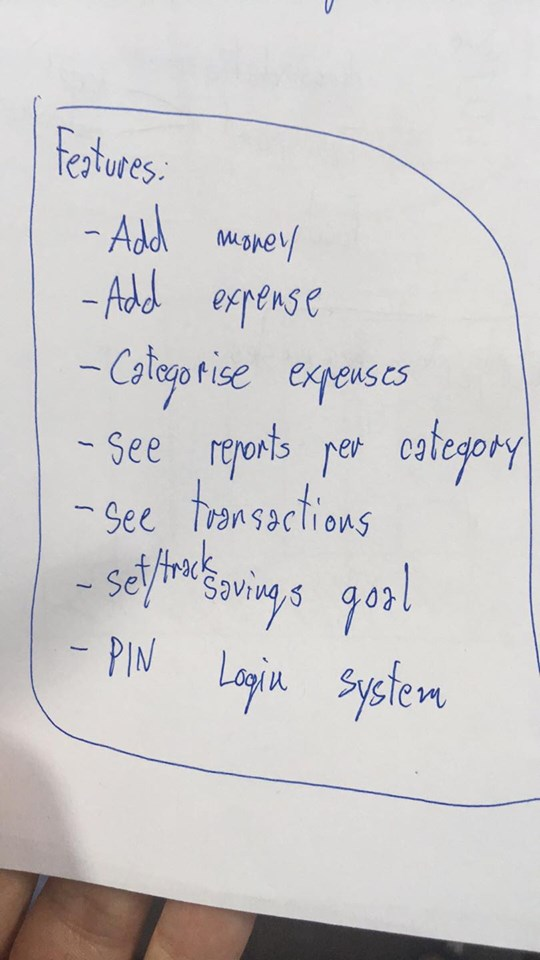 Features:
- Add money
- Add expense
- Categorise expenses
- See reports per category
- See transactions
- Set/track savings goal
- PIN Login system